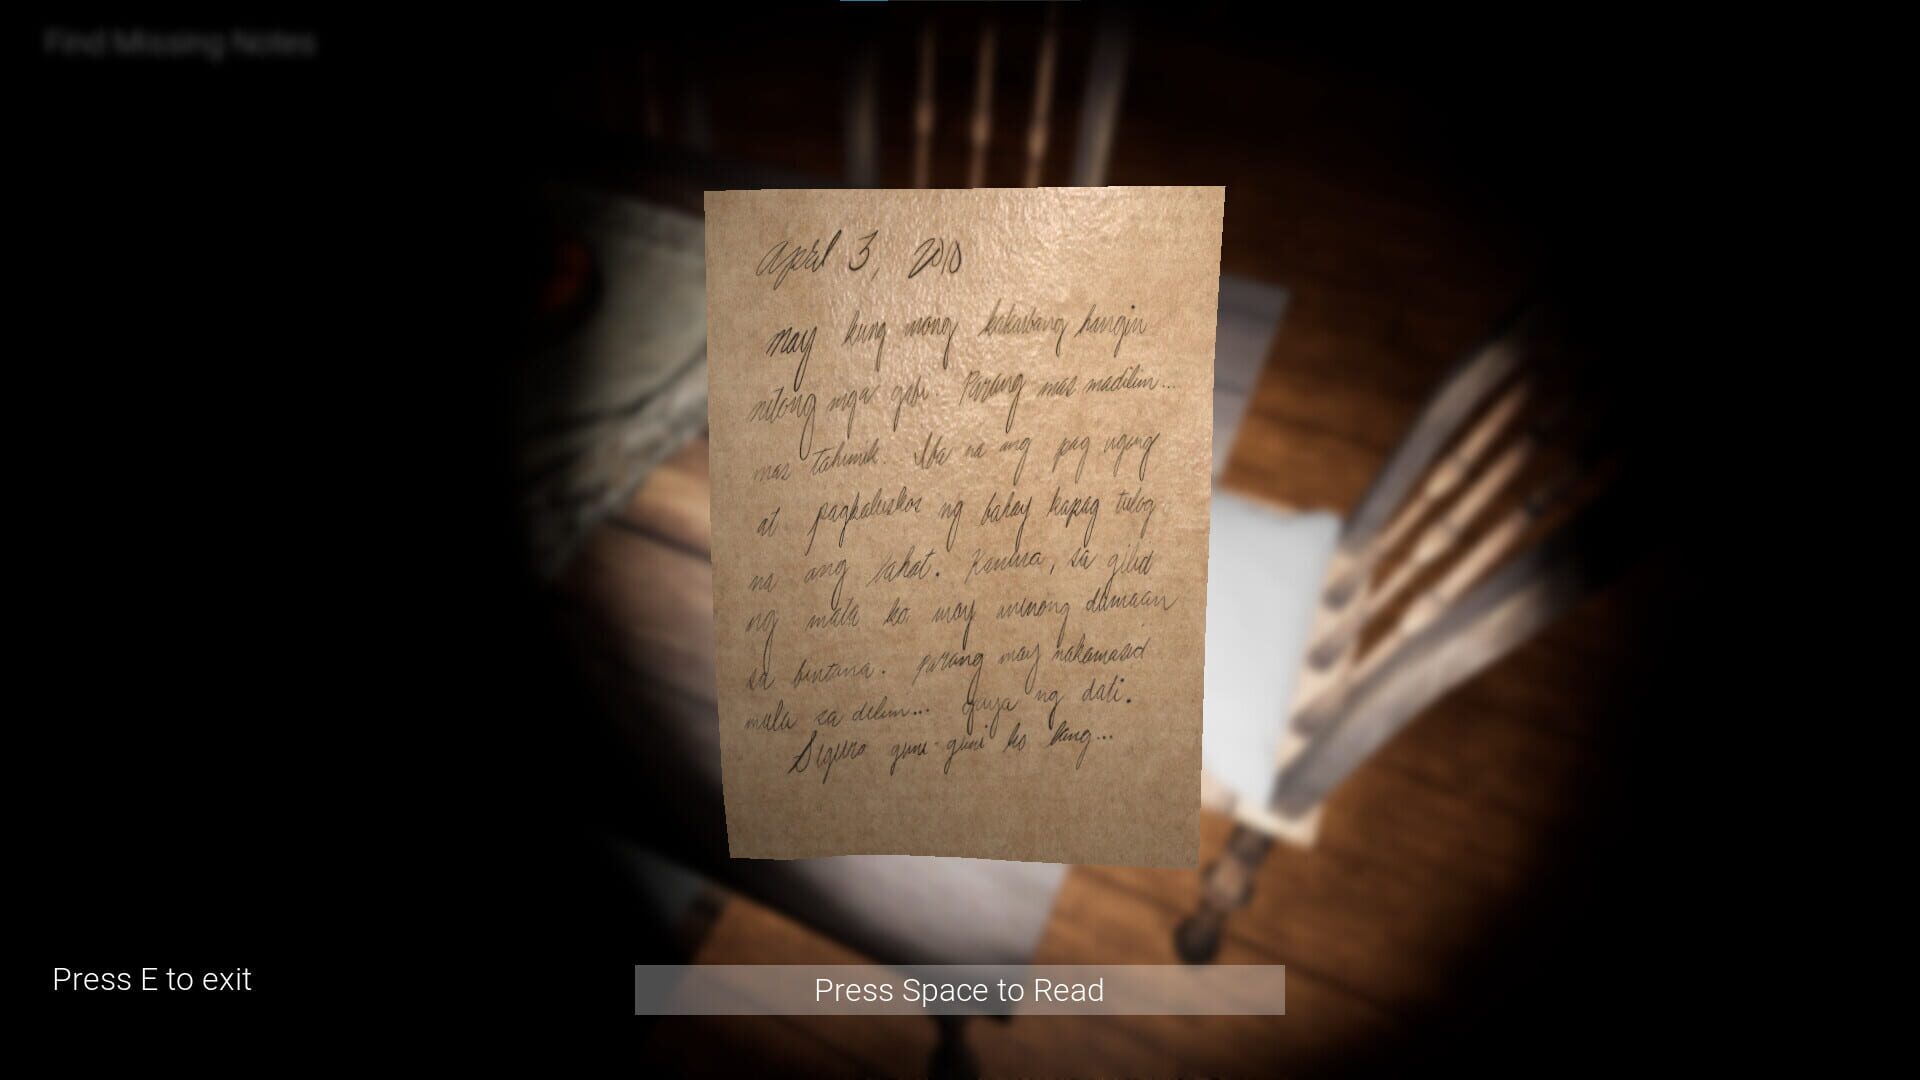 Find Missing Notes
April 3, 2010
may kung anong kakaibang hangin
nitong mga gabi. Parang mas madilim...
mas tahimik. Iba na ang pag ugong
at pagkaluskos ng bahay kapag tulog
na ang lahat. Kanina, sa gilid
ng mata ko may aninong dumaan
sa bintana. parang may nakamasid
mula sa dilim... gaya ng dati.
Siguro guni-guni ko lang...
Press E to exit
Press Space to Read